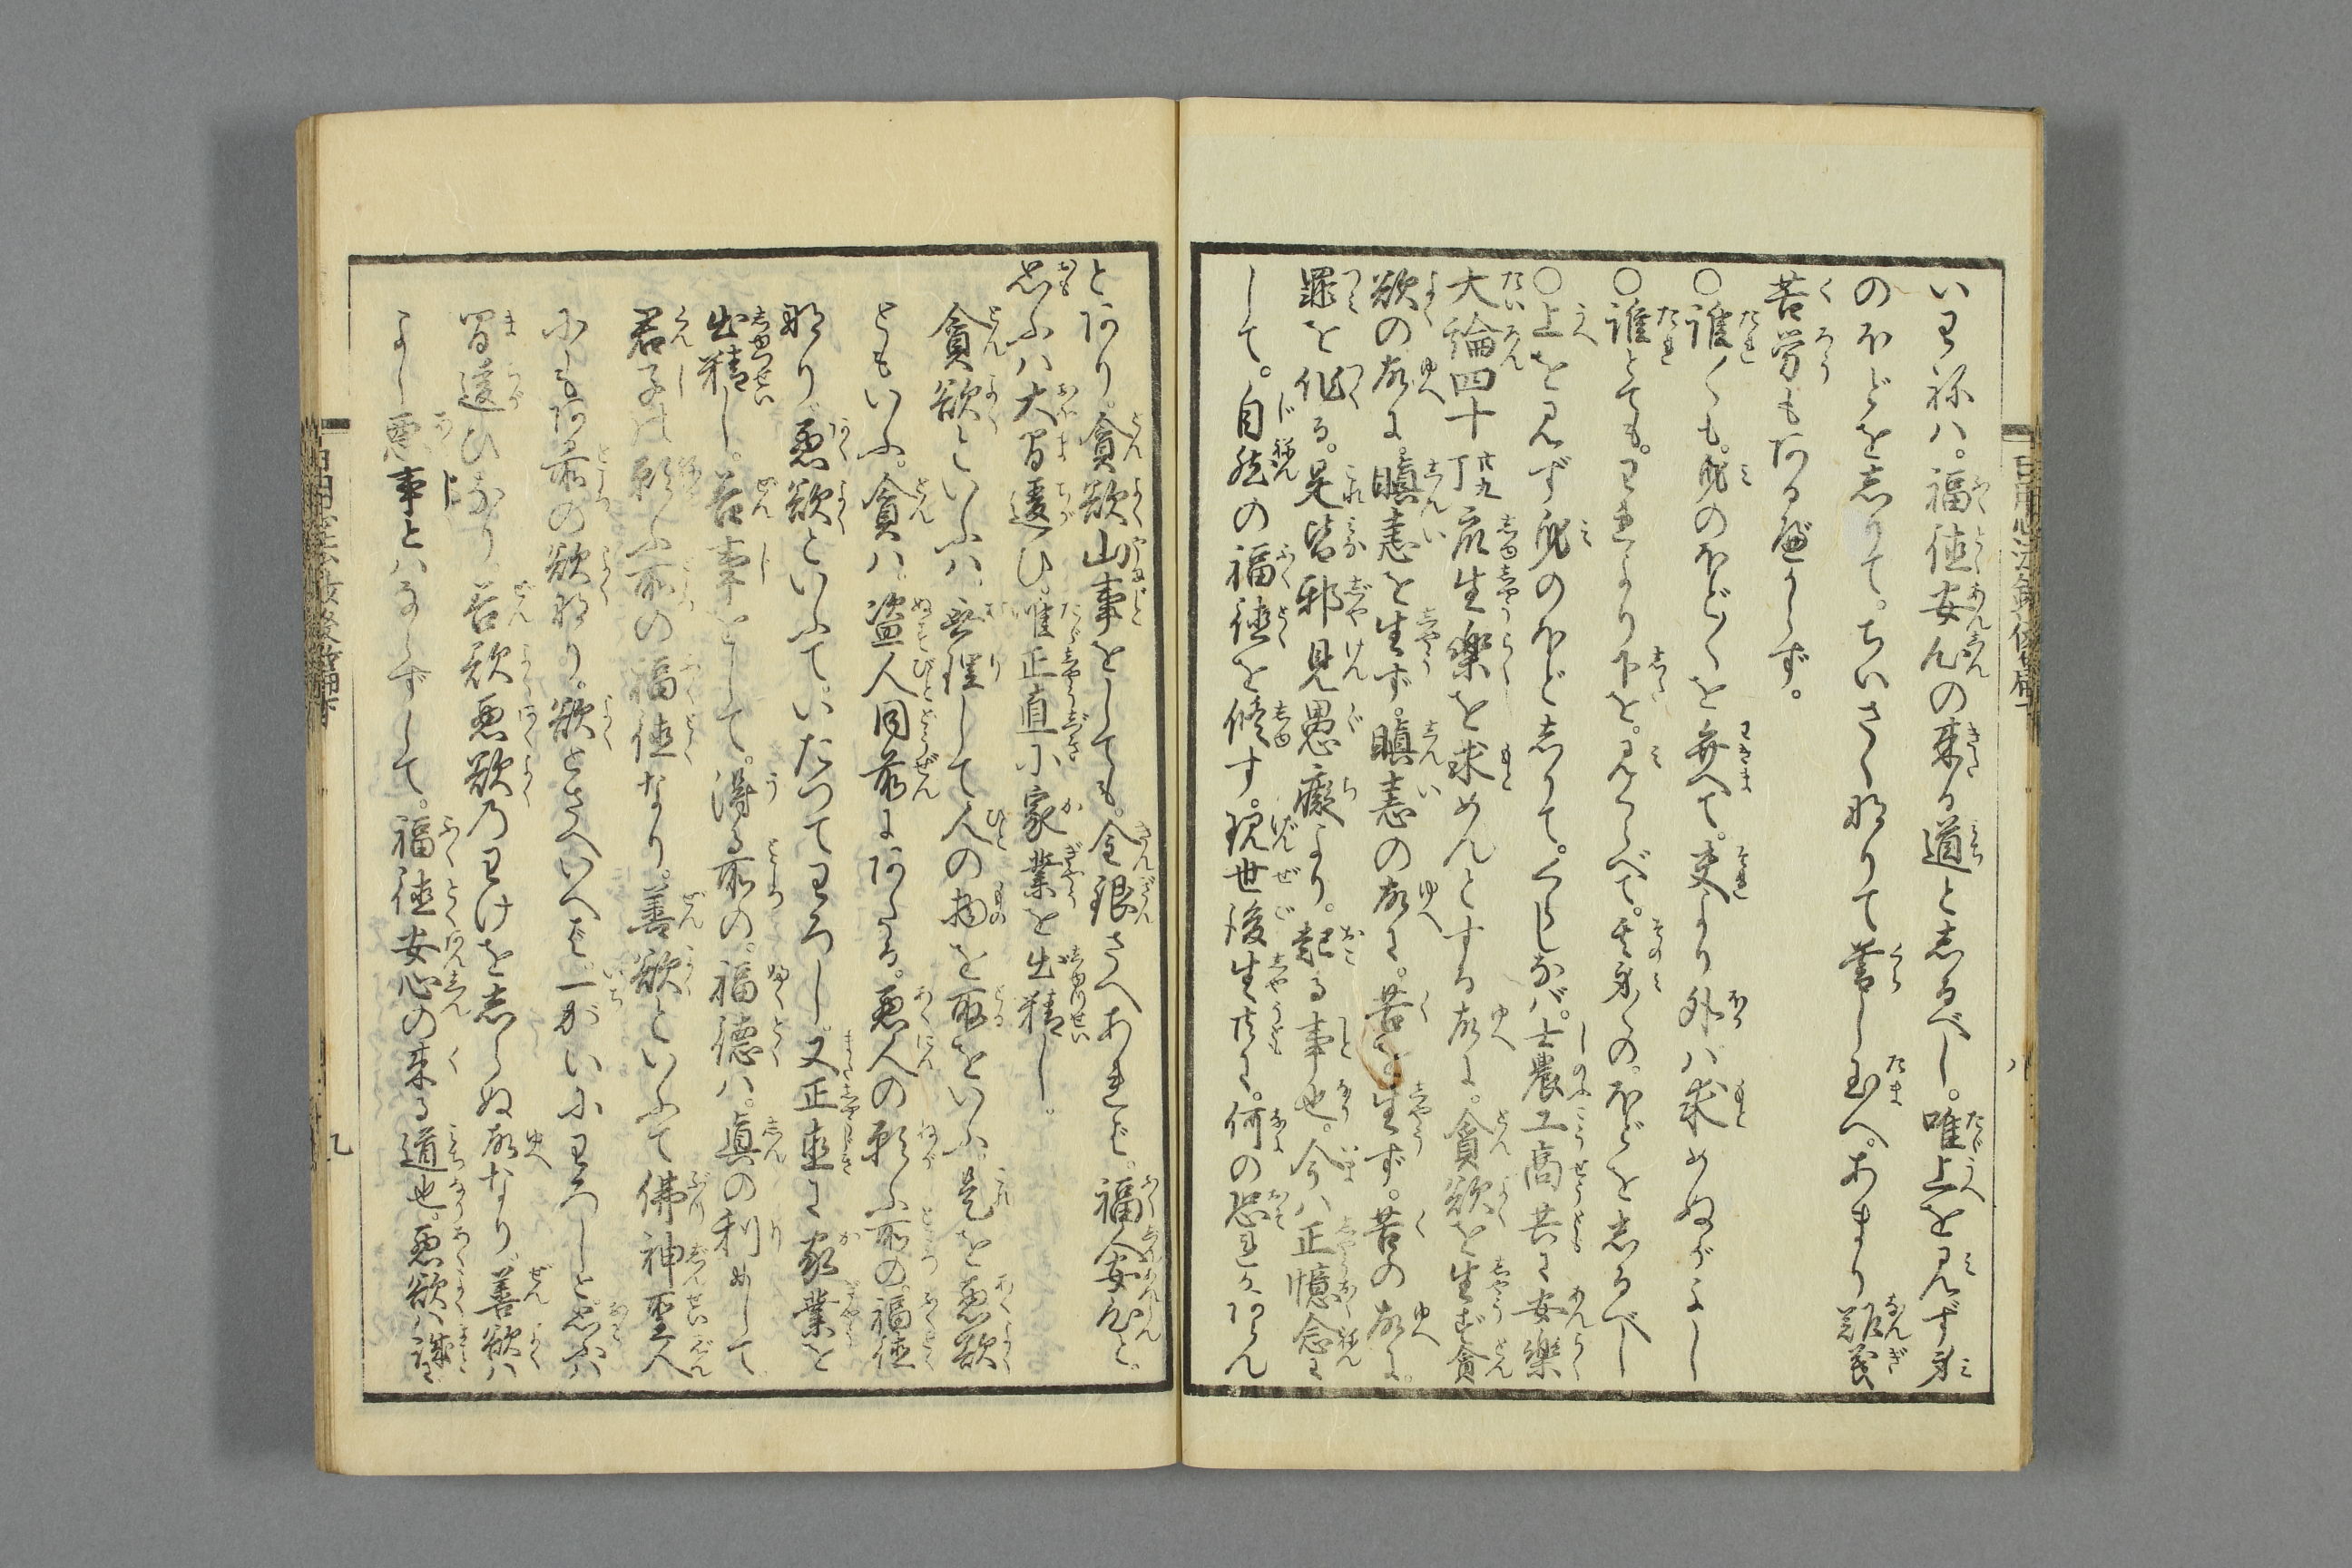 いま祢ハ。福徳安んの来る道と志るべし。唯上を見ず身
のほどを志りて。ちいさく那りて営し玉へ。あまり難義
苦労もある𛂦からず。
○誰〳〵も。身のほど〳〵を弁へて。夫より外ハ求めぬがよし
○誰とても。われより下を。見くらべて。其身〳〵の。ほどを志るべし
○上を見ず身のほど志りて。くらしなバ。士農工商共に安楽
大論四十丁廿九衆生楽を求めんとする故に。貪欲を生ず貪
欲の故に。瞋恚を生ず。瞋恚の故に。苦を生ず。苦の故に。
罪を作る。是皆邪見愚癡より。起る事也。今ハ正憶念に
して。自然の福徳を修す。現世後生共に。何の恐れかあらん
八
とあり。貪欲山事をしても。金銀さへあれど。福人安心と。
思ふハ大間違ひ。唯正直に家業を出精し。
貪欲といふハ。無理して人の物を取をいふ。是を悪欲
ともいふ。貪ハ。盗人同前にあたる。悪人の願ふ所の。福徳
那り。悪欲といふて。いたつてわろし。又正直に家業を
出精し。善事をして。得る所の。福徳ハ。真の利めして
君子の願ふ所の福徳なり。善欲といふて佛神聖人
にもある所の欲那り。欲とさへいへど。一がいにわろしと。思ふハ
間違ひなり。善欲悪欲乃わけを志らぬ故なり。善欲ハ
よし悪事とハならずして。福徳安心の来る道也。悪欲ハ誠に
九